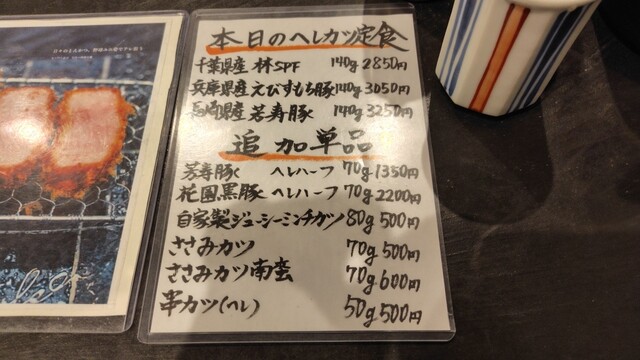 本日のヘレカツ定食
千葉県産 林SPF 140g 2850円
兵庫県産えびすもち豚 140g 3050円
長崎県産 芳寿豚 140g 3250円
追加単品
芳寿豚 ヘレハーフ 70g 1350円
花園黒豚 ヘレハーフ 70g 2200円
自家製ジューシーミンチカツ 80g 500円
ささみカツ 70g 500円
ささみカツ南蛮 70g 600円
串カツ(ヘレ) 50g 500円